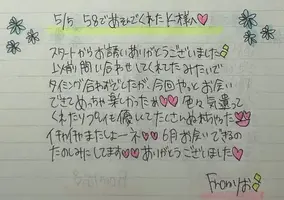 5/5 58であそんでくれたK様へ♡
スタートからお誘いありがとうございました
以前問い合わせしてくれてたみたいで
タイミング合わずでしたが、今回やっとお会い
できてめっちゃ楽しかったぁ♡色々気遣って
くれたりプレイも優しくてたくさんぬれちゃった
イチャイチャまたしよーネ♡♡6月お会いできるの
たのしみにしてます♡♡ありがとうございました♡♡
Fromりお